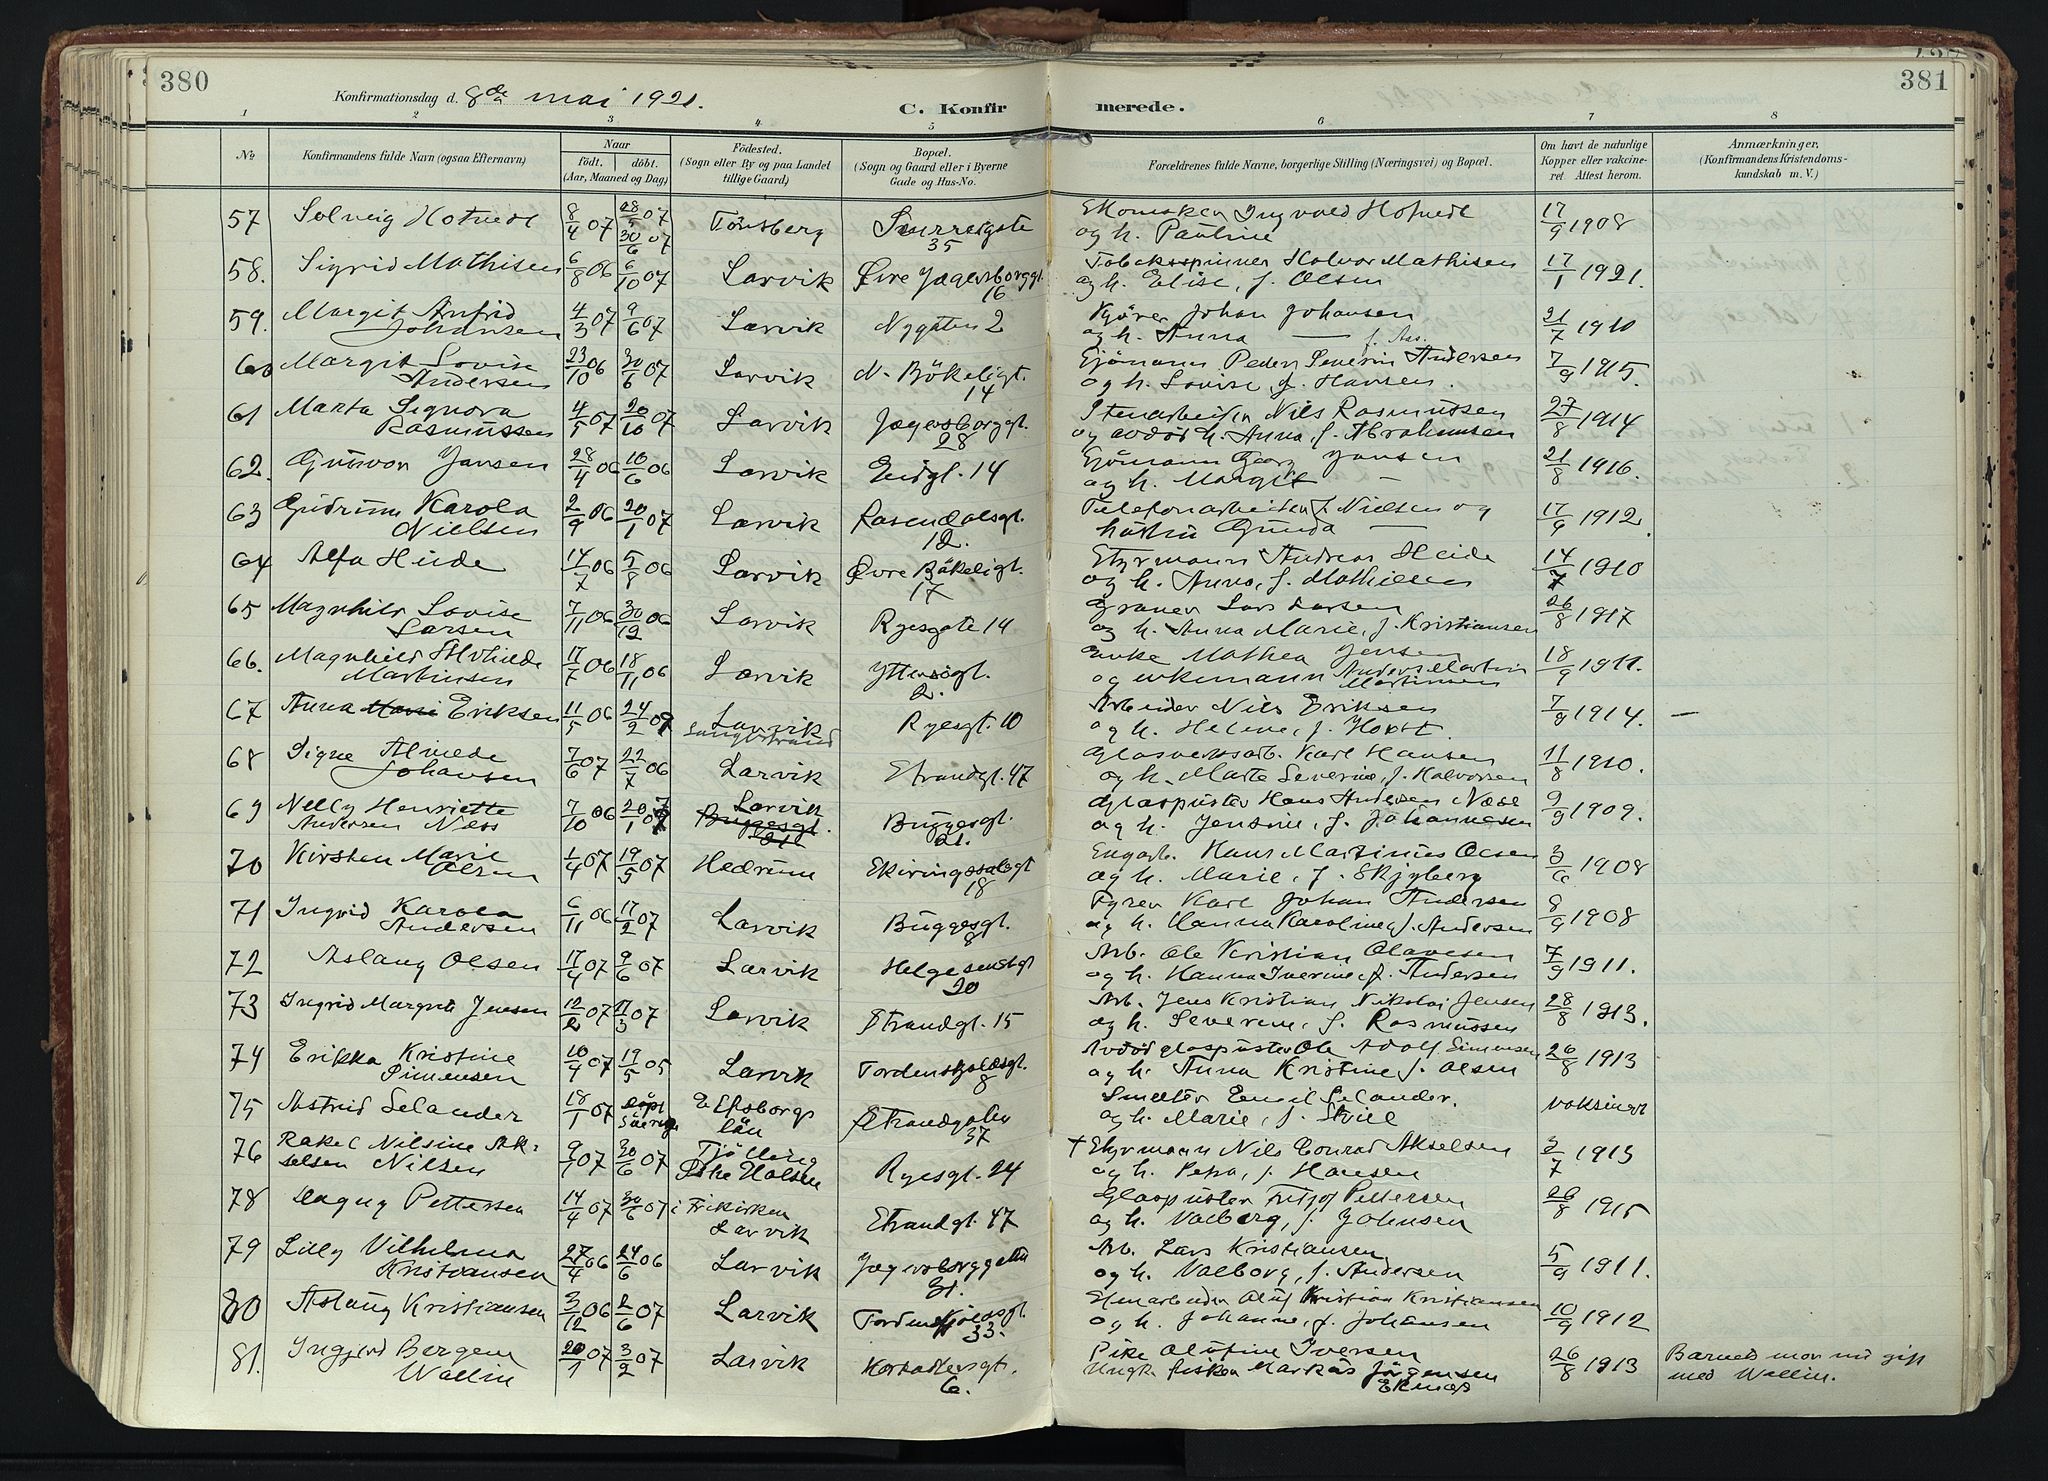 380
381
Konfirmationsdag d. 8de mai 1921.
C. Konfirmerede.
1 2 3 4 5 6 7 8
No
Konfirmandens fulde Navn (ogsaa Efternavn)
Naar
født. døbt.
(Aar, Maaned og Dag)
Födested.
(Sogn eller By og paa Landet
tillige Gaard)
Bopæl.
(Sogn og Gaard eller i Byerne
Gade og Hus-No.
Forældrenes fulde Navne, borgerlige Stilling (Næringsvei) og Bopæl.
Om havt de naturlige
Kopper eller vakcine-
ret Attest herom.
Anmærkninger.
(Konfirmandens Kristendoms-
kundskab m. V.)
57 Solveig Hotvedt 8/4 07 07 30/6 07 Tønsberg
35
Ingvald Hotvedt 17/9 1908
og h. Pauline
58. Sigrid Mathisen 6/8 06 6/10 07 Larvik Øvre Jægersborggt.
16
Tobakspinner Halvor Mathisen 17/1 1921.
og h. Elise, f. Olsen
59. Margit Anfrid 4/3 07 9/6 07 Larvik Nygaten 2
Johansen
Kjører Johan Johansen 21/7 1910
og h. Anna — f. Aas.
60 Margit Lovise 23/10 06 30/6 07 Larvik N. Bökeligt.
Andersen 14
Sjömann Peder Severin Andersen 7/9 1915.
og h. Lovise, f. Hansen.
61 Marta Signora 4/5 07 20/10 07 Larvik Jægersborggt.
Rasmussen 28
Stenarbeider Nils Rasmussen 27/8 1914
og avdød h. Anna, f. Abrahamsen
62. Gunvor Jansen 28/4 06 10/6 06 Larvik Eidgt. 14
Sjömann Georg Jansen 21/8 1916.
og h. Margit —
63 Gudrun Karola 2/9 06 20/1 07 Larvik Rosendalsgt.
Nielsen 12.
Telefonarbeider J. Nielsen og 17/9 1912.
hustru Gunda —
64 Alfa Heide 14/7 06 5/8 06 Larvik Øvre Bökeligt.
17
Styrmann Andreas Heide 14/7 1910
og h. Anna, f. Mathisen
65 Magnhild Lovise 7/11 06 30/12 06 Larvik Ryesgate 14
Larsen
Graver Lars Larsen 26/8 1917
og h. Anna Marie, f. Kristiansen
66. Magnhild 17/7 06 18/11 06 Larvik Yttersögt.
Martinsen 2.
Enke Mathea Jensen 18/9 1911.
og enkemann Anders Martin
Martinsen
67 Anna Marie Eriksen 11/5 06 24/2 07 Larvik Ryesgt. 10
Langestrand
Arbeider Nils Eriksen 7/9 1914. —
og h. Helene, f. Hoxt.
68 Signe Alvilde 7/6 07 22/7 06 Larvik Strandgt. 47
Johansen
Glasverksarb. Karl Hansen 11/8 1910.
og h. Marte Severine, f. Halvorsen
69 Nelly Henriette 7/10 06 20/1 07 Larvik Buggesgt.
Andersen Næss Buggesgt. 21.
Glaspuster Hans Andersen Næss 9/9 1909.
og h. Jensine, f. Johannesen
70 Kirsten Marie 1/4 07 19/5 07 Hedrum Skiringssalsgt
Olsen 18
Hans Martinius Olsen 3/6 1908
og h. Marie, f. Skjyberg
71 Ingrid Karola 6/11 06 17/2 07 Larvik Buggesgt.
Andersen 8
Fyrer Karl Johan Andersen 8/9 1908
og h. Hanna Karoline, f. Andersen
72 Aslaug Olsen 17/4 07 9/6 07 Larvik Helgesensgt
20
Arb. Ole Kristian Olavesen 7/9 1911.
og h. Hanna Iverine, f. Andersen
73 Ingrid Margrete Jensen 12/2 07 17/3 07 Larvik Strandgt. 15
Arb. Jens Kristian Nikolai Jensen 28/8 1913.
og h. Severine, f. Rasmussen
74 Erikka Kristine 10/4 07 19/5 05 Larvik Tordenskjoldsgt.
Simensen 8
Avdød glaspuster Ole Adolf Simensen 26/8 1913
og h. Anna Kristine f. Olsen
75 Astrid Selander 18/1 07 döpt Sverige Elfsborgs Strandgaten
län 37
Smelter Emil Selander. vaksinert
og h. Marie, f.
76 Rakel Nilsine Ak- 9/1 07 30/6 07 Tjölling Ryesgt. 24
selsen Nilsen Halsen
† Styrmann Nils Conrad Akselsen 3/7 1913
og h. Petra, f. Hansen
78 Dagny Pettersen 14/4 07 30/6 07 i Frikirken Strandgt. 47
Larvik
Glaspuster Fritjof Pettersen 26/8 1915
og h. Valborg, f. Johnsen
79 Lilly Vilhelma 27/4 06 24/6 06 Larvik Jægersborggaten
Kristiansen 31.
Arb. Lars Kristiansen 5/9 1911.
og h. Valborg, f. Andersen
80 Aslaug Kristiansen 3/12 06 2/6 07 Larvik Tordenskjoldsgt.
33.
Stenarbeider Oluf Kristian Kristiansen 10/9 1912
og h. Johanne, f. Johansen
81. Ingjerd Bergem 20/1 07 3/2 07 Larvik Korsadlersgt.
Wallin 6.
Pike Olufine Iversen 26/8 1913 Barnets mor nu gift
Ungk. fisker Markus Jörgensen med Wallin.
Eknæs